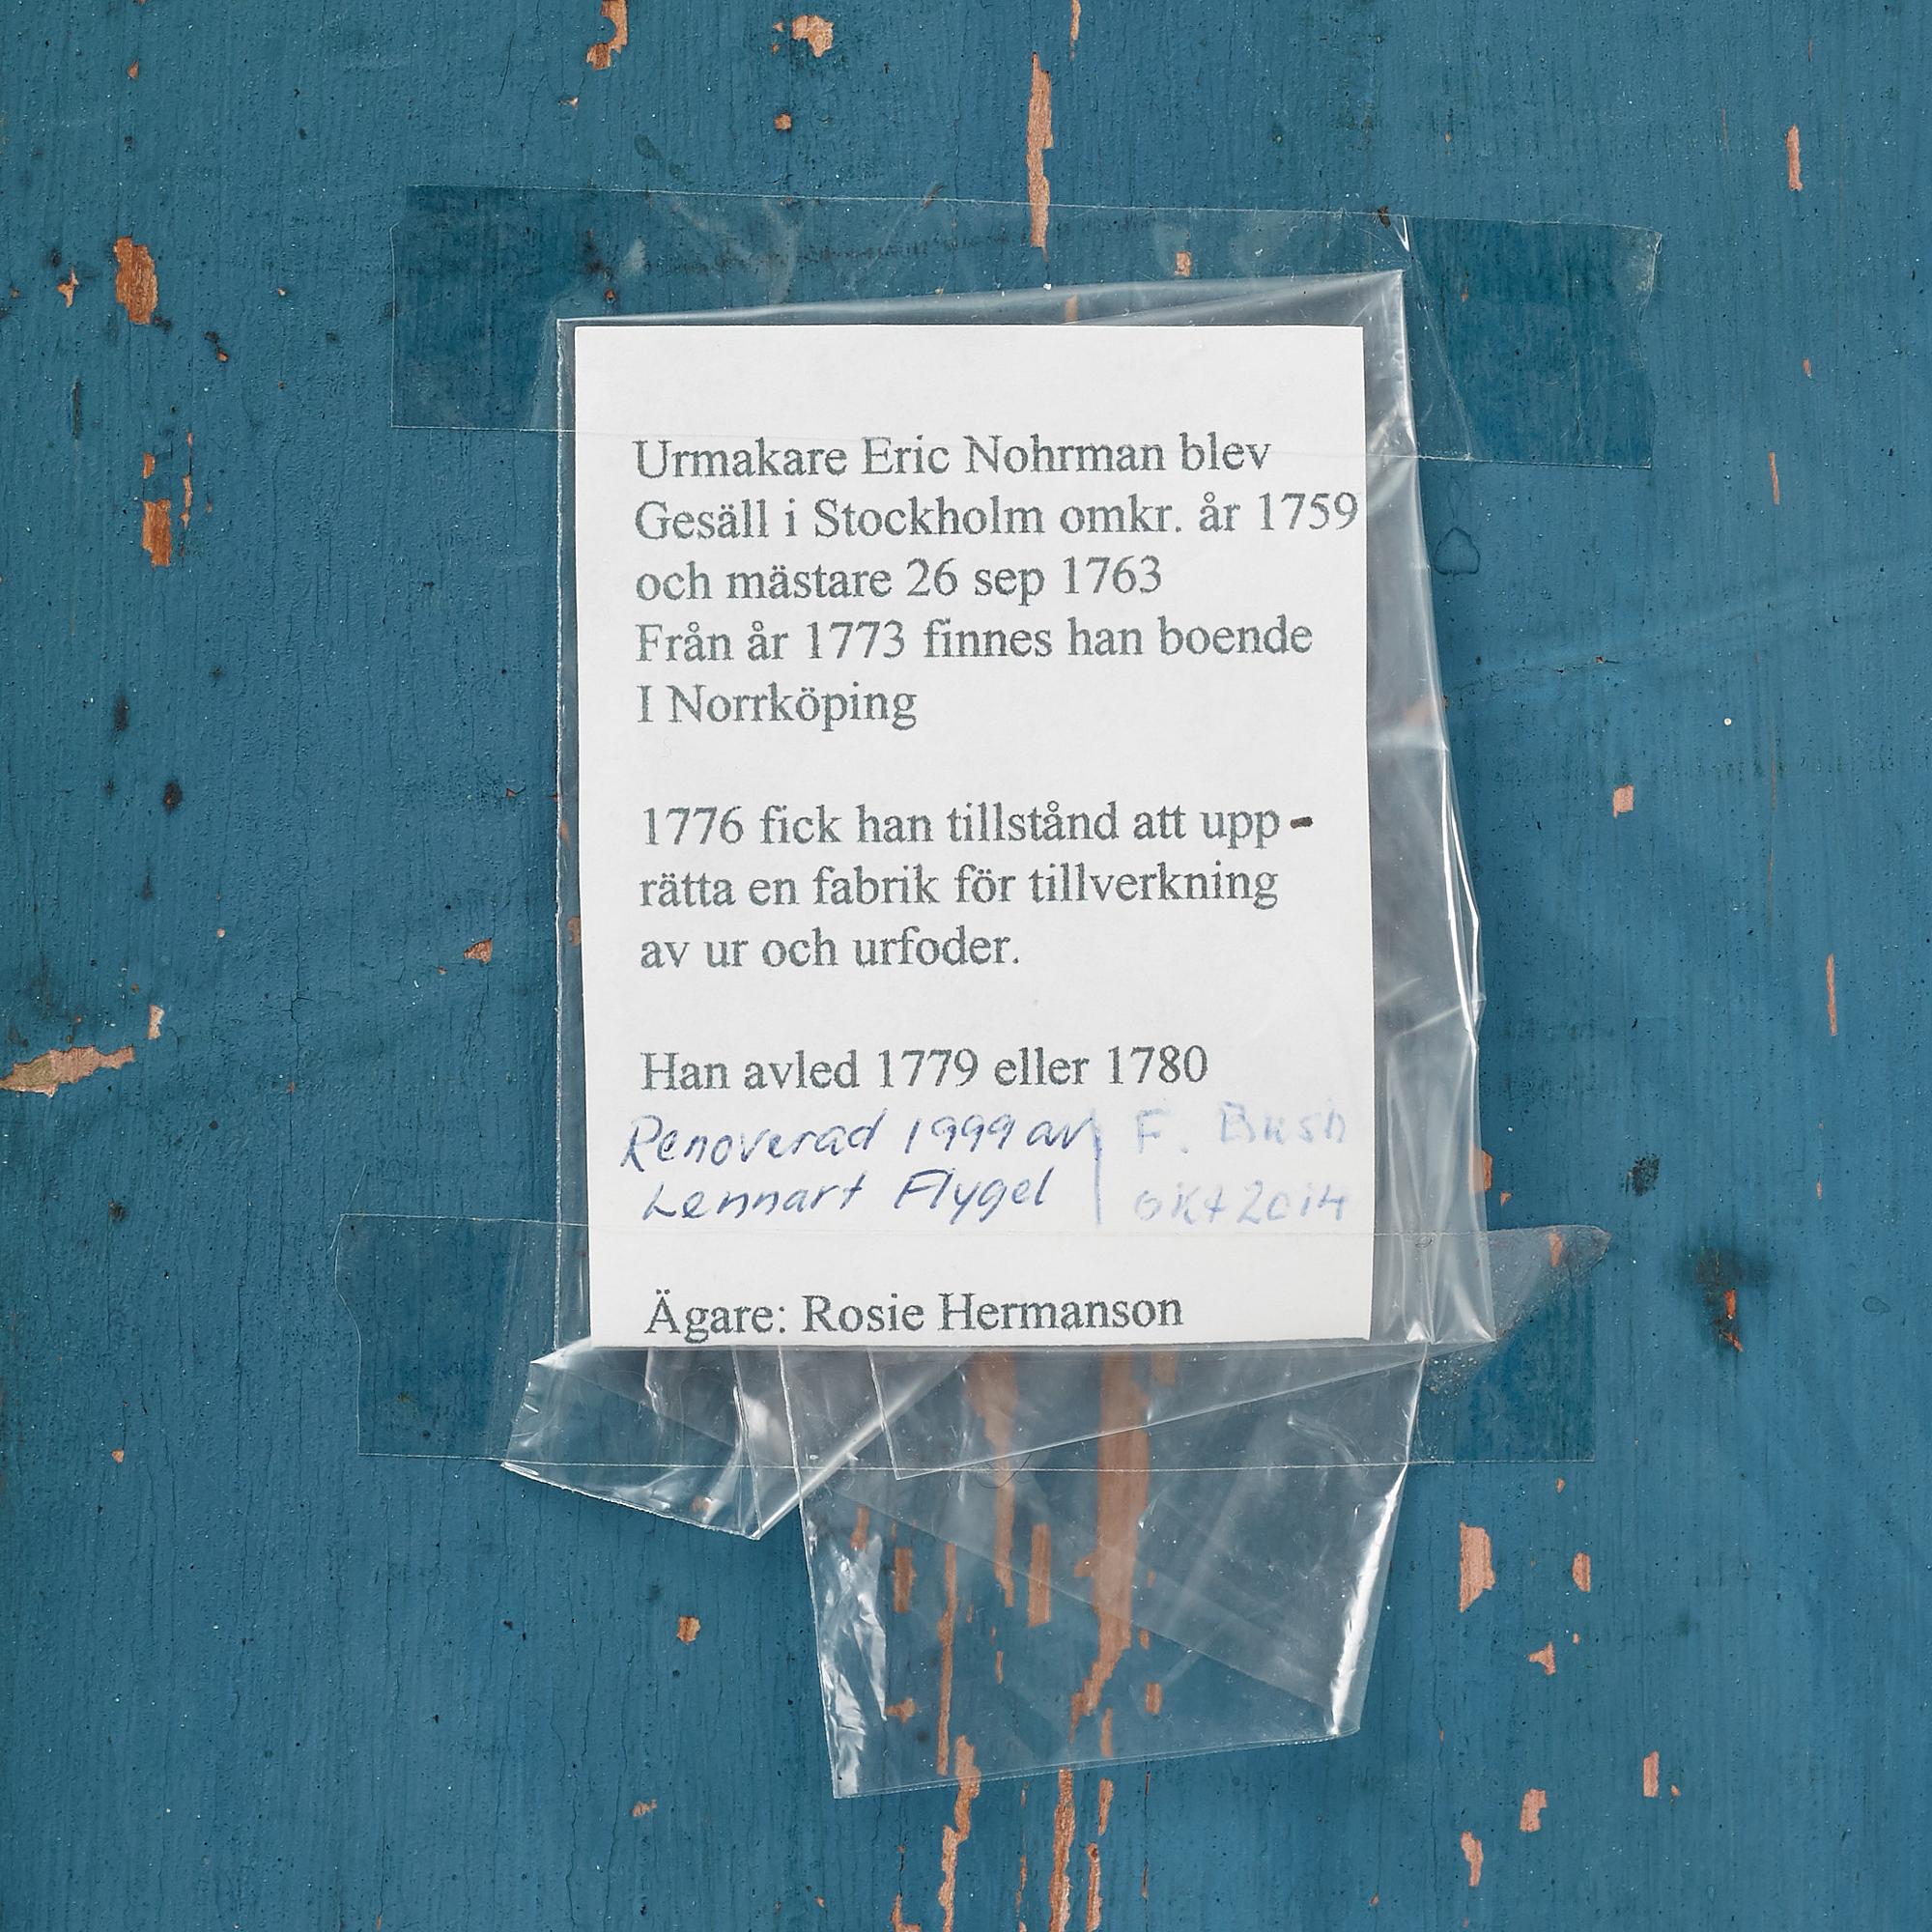 Urmakare Eric Nohrman blev
Gesäll i Stockholm omkr. år 1759
och mästare 26 sep 1763
Från år 1773 finnes han boende
I Norrköping
1776 fick han tillstånd att upp-
rätta en fabrik för tillverkning
av ur och urfoder.
Han avled 1779 eller 1780
Renoverad 1999 av
Lennart Flygel
F. Bush
okt 2014
Ägare: Rosie Hermanson